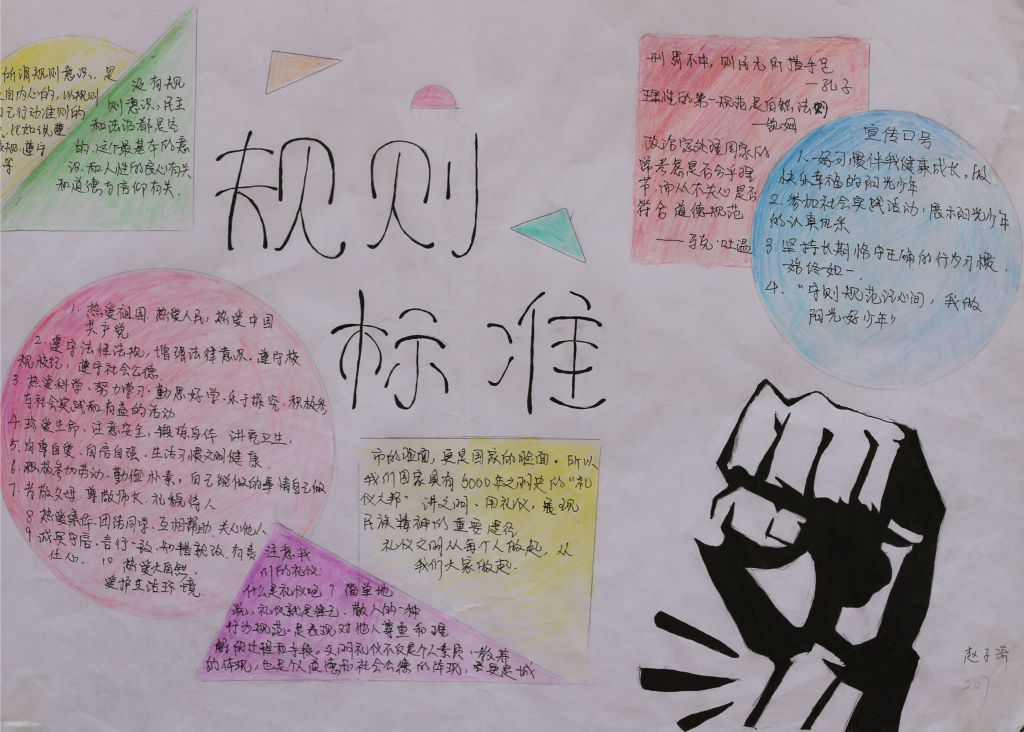 所谓规则意识，是
自内心的，以规则
己行动准则的
比如说遵
遵守
等
没有规
则意识，民主
和法治都是空
的，这个最基本的意
识和人性的良心有关
和道德与信仰有关.
规则
标准
刑罚不中，则民无所措手足
——孔子
理性的第一规范是自然法则
政治家处理国家的
常考虑是否合乎理
节，而从不关心是否
符合道德规范
——马克·吐温
宣传口号
1、好习惯伴我健康成长，做
快乐幸福的阳光少年
2.参加社会实践活动，展示阳光少年
的认真风采
3 坚持长期恪守正确的行为习惯.
始终如一.
4、“守则规范记心间，我做
阳光好少年”
1、热爱祖国.热爱人民，热爱中国
共产党
2.遵守法律法规，增强法律意识。遵守校
规校纪，遵守社会公德.
3、热爱科学、努力学习、勤思好学、乐于探究、积极参
与社会实践和有益的活动
4、珍爱生命、注意安全，锻炼身体 讲究卫生.
5、自尊自爱、自信自强、生活习惯文明健康.
6、积极参加劳动、勤俭朴素，自己能做的事情自己做
7、孝敬父母、尊敬师长、礼貌待人
8 热爱集体、团结同学、互相帮助、关心他人
9、诚实守信、言行一致、知错就改、有责
任心. 10 热爱大自然.
爱护生活环境.
注意我
们的礼仪:
什么是礼仪呢？简单地
说，礼仪就是律己、敬人的一种
行为规范.是表现对他人尊重和理
解的过程和手段。文明礼仪不仅是个人素质、教养
的体现，也是个人道德和社会公德的体现，更是城
市的脸面，更是国家的脸面。所以
我们国家具有5000年文明史的“礼
仪之邦” 讲文明、用礼仪，展现
民族精神的重要途径
礼仪文明从每个人做起，从
我们大家做起.
赵子琦
227